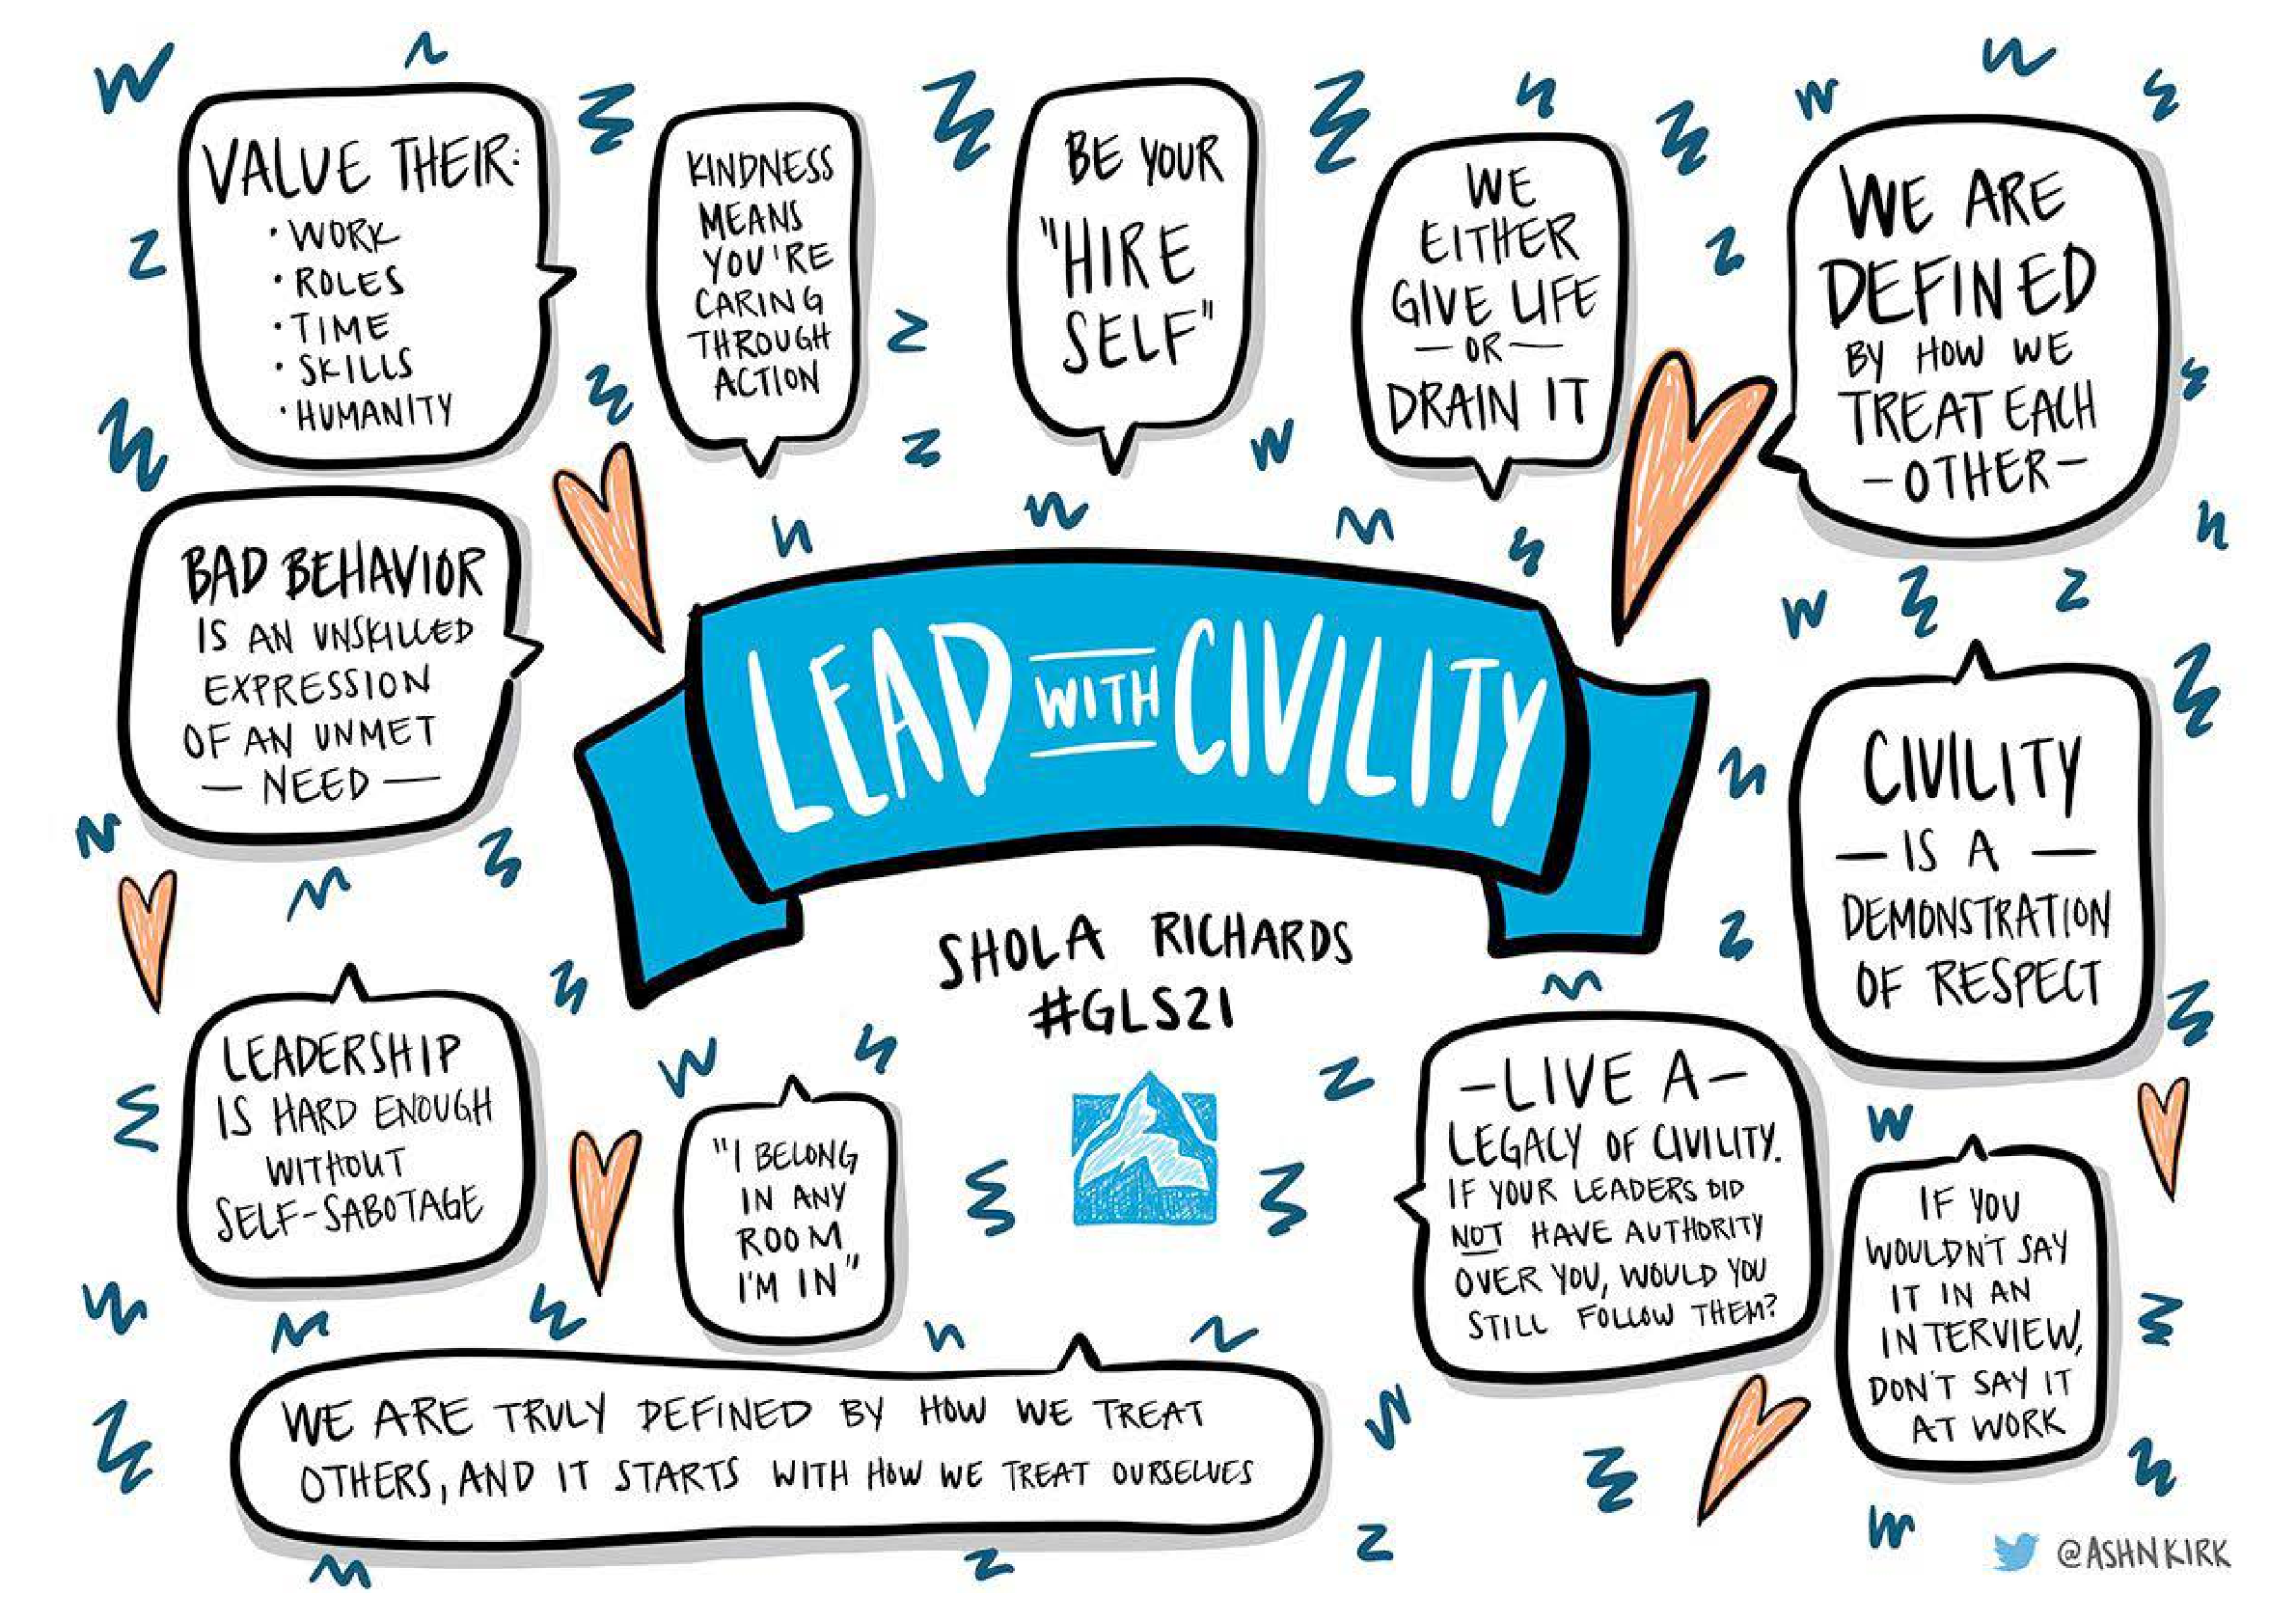 VALUE THEIR:
• WORK
• ROLES
• TIME
• SKILLS
• HUMANITY
KINDNESS
MEANS
YOU'RE
CARING
THROUGH
ACTION
BE YOUR
"HIRE
SELF"
WE
EITHER
GIVE LIFE
— OR —
DRAIN IT
WE ARE
DEFINED
BY HOW WE
TREAT EACH
– OTHER –
BAD BEHAVIOR
IS AN UNSKILLED
EXPRESSION
OF AN UNMET
— NEED —
LEAD WITH CIVILITY
SHOLA RICHARDS
#GLS21
CIVILITY
— IS A —
DEMONSTRATION
OF RESPECT
LEADERSHIP
IS HARD ENOUGH
WITHOUT
SELF-SABOTAGE
"I BELONG
IN ANY
ROOM
I'M IN"
– LIVE A –
LEGACY OF CIVILITY.
IF YOUR LEADERS DID
NOT HAVE AUTHORITY
OVER YOU, WOULD YOU
STILL FOLLOW THEM?
IF YOU
WOULDN'T SAY
IT IN AN
INTERVIEW,
DON'T SAY IT
AT WORK
WE ARE TRULY DEFINED BY HOW WE TREAT
OTHERS, AND IT STARTS WITH HOW WE TREAT OURSELVES
@ASHNKIRK